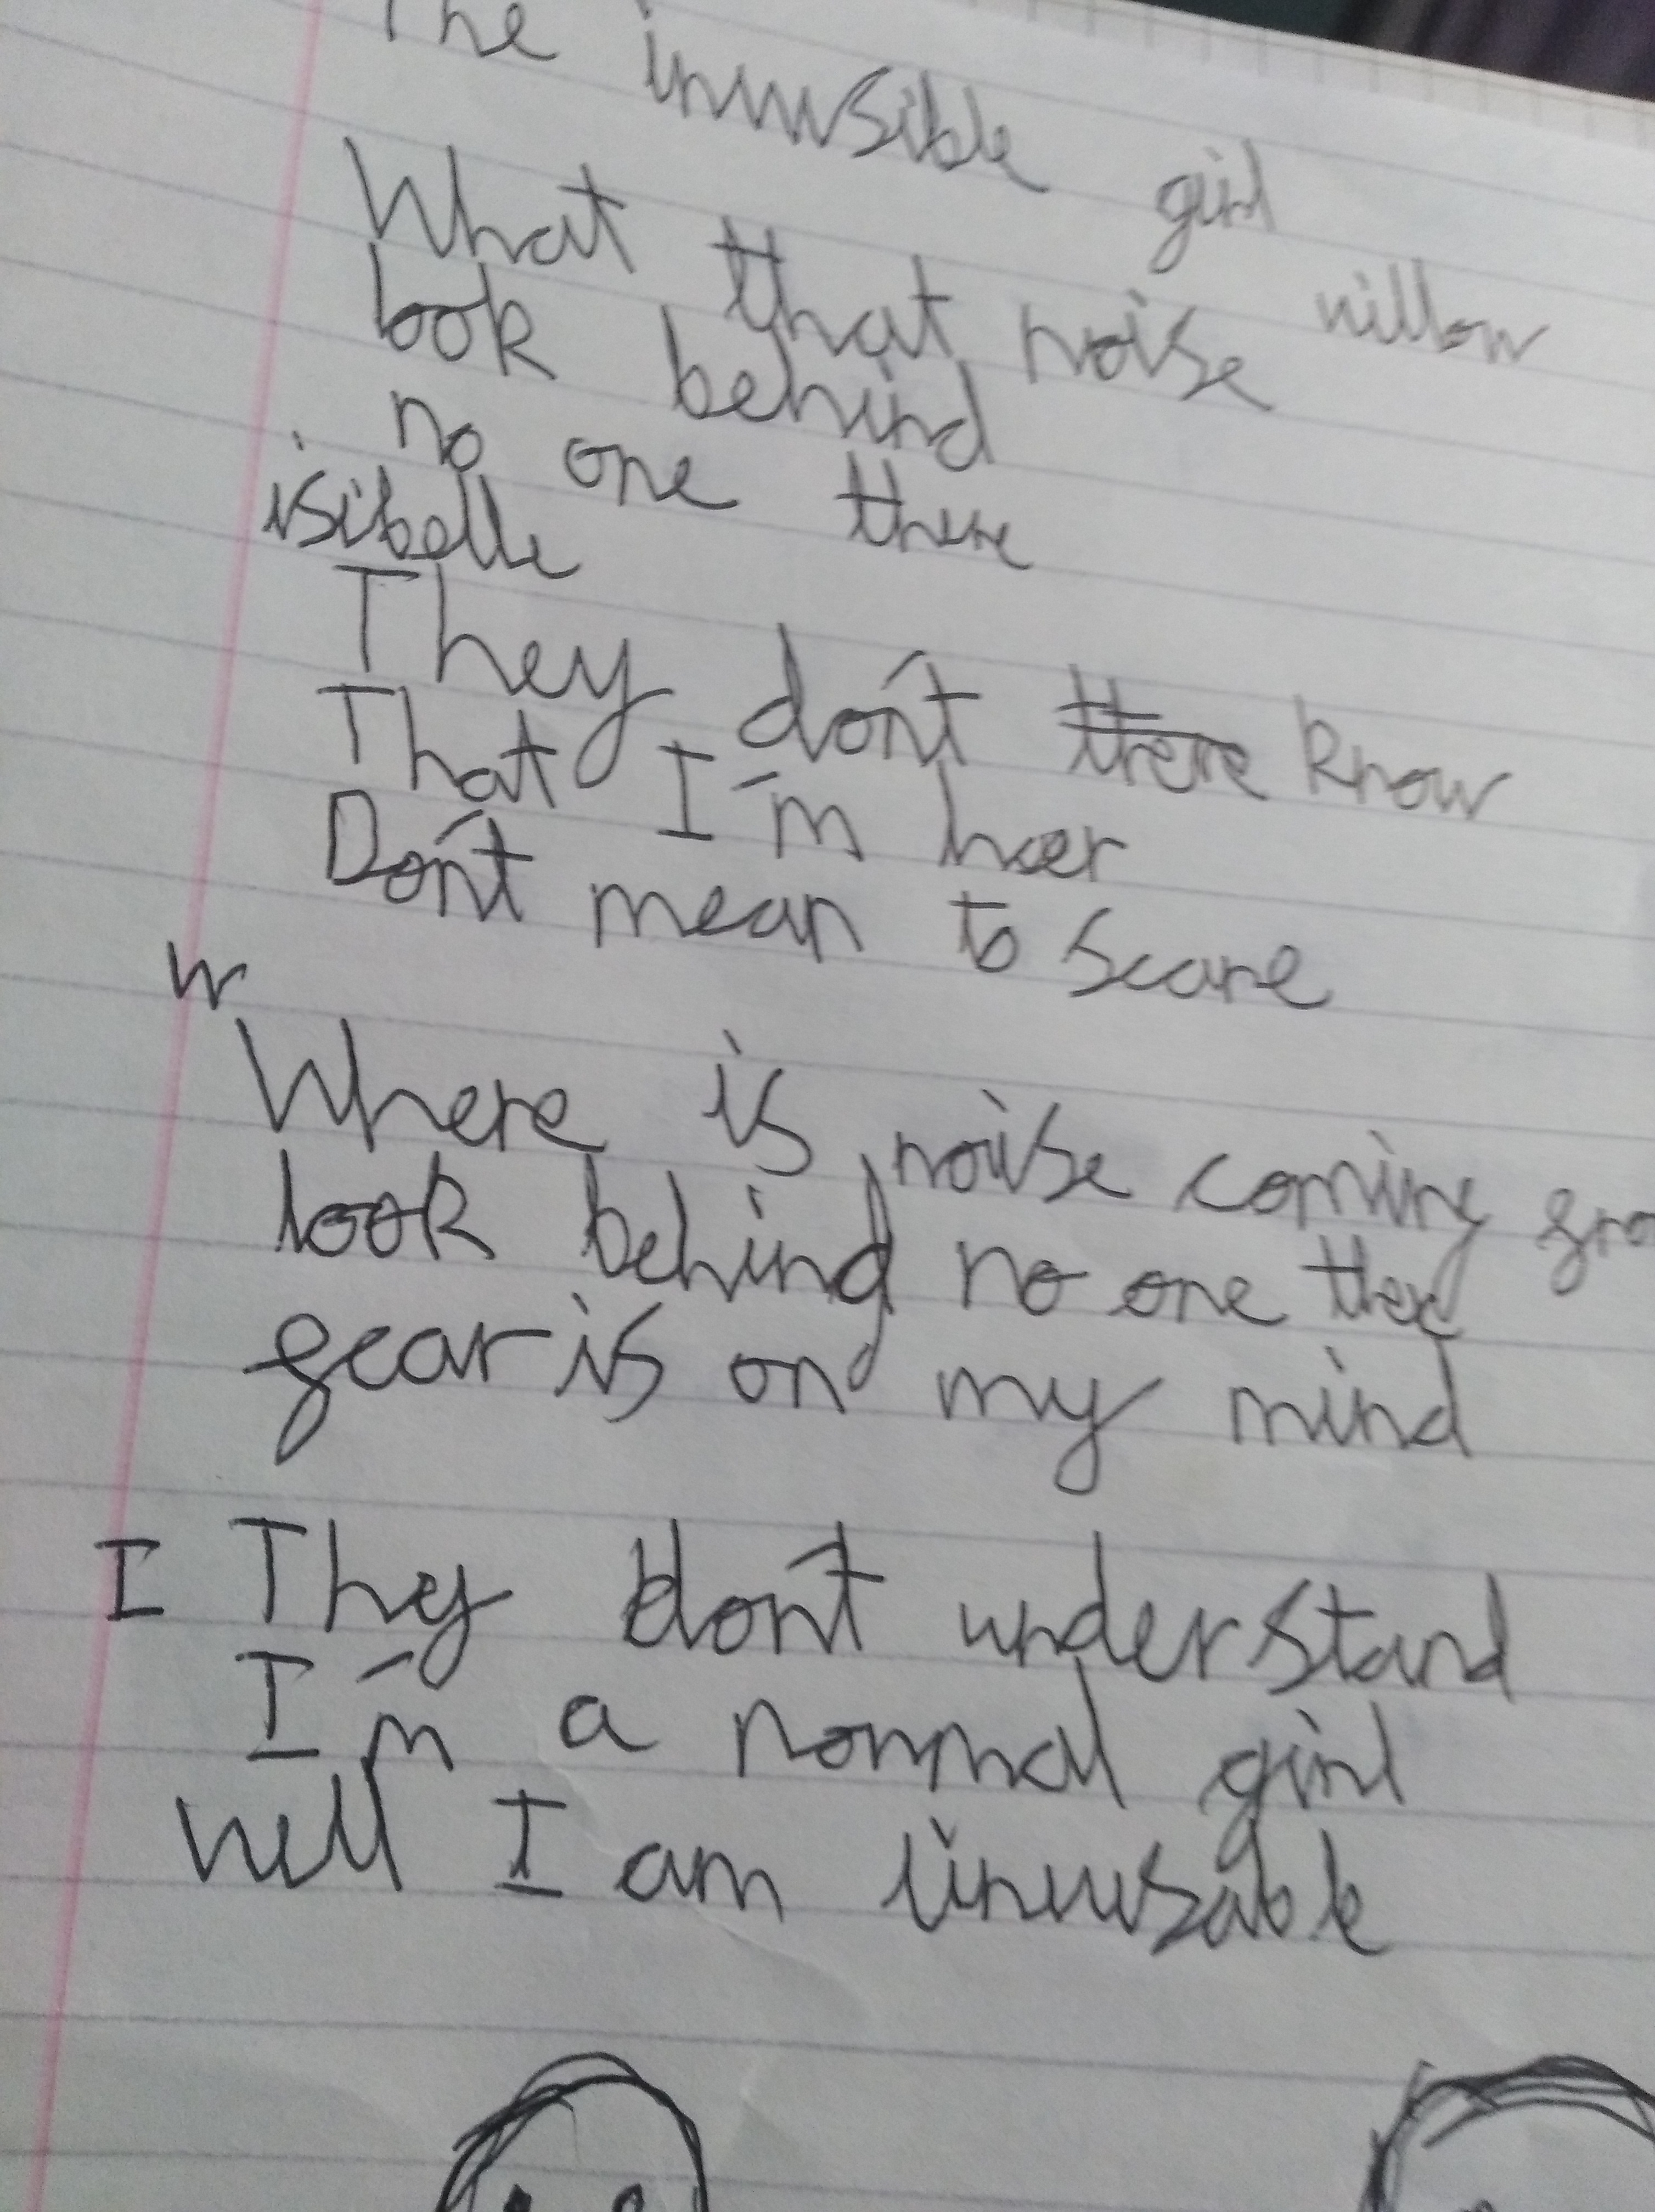 The invisible girl
willow
What that noise
look behind
no one there
isibelle
They don't there know
That I'm heer
Don't mean to scare
W
Where is noise coming fro
look behind no one there
fear is on my mind
I They don't understand
I'm a normal girl
well I am